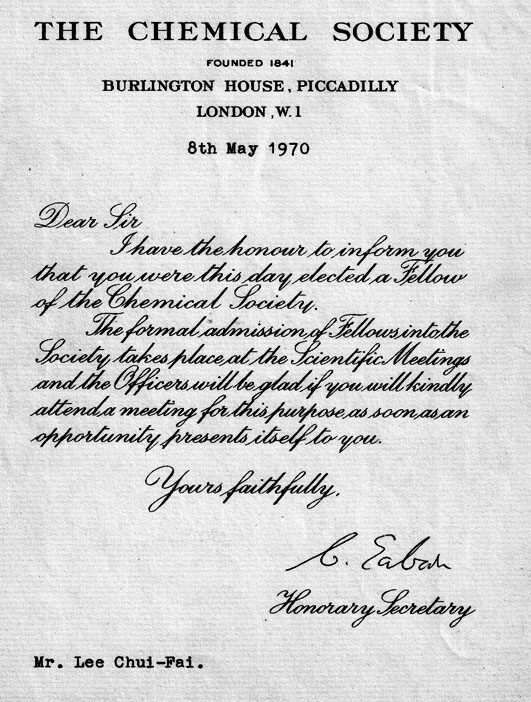 THE CHEMICAL SOCIETY
FOUNDED 1841
BURLINGTON HOUSE, PICCADILLY
LONDON, W.1
8th May 1970
Dear Sir
I have the honour to inform you
that you were this day elected a Fellow
of the Chemical Society.
The formal admission of Fellows into the
Society takes place at the Scientific Meetings
and the Officers will be glad if you will kindly
attend a meeting for this purpose as soon as an
opportunity presents itself to you.
Yours faithfully,
C.
Honorary Secretary
Mr. Lee Chui-Fai.